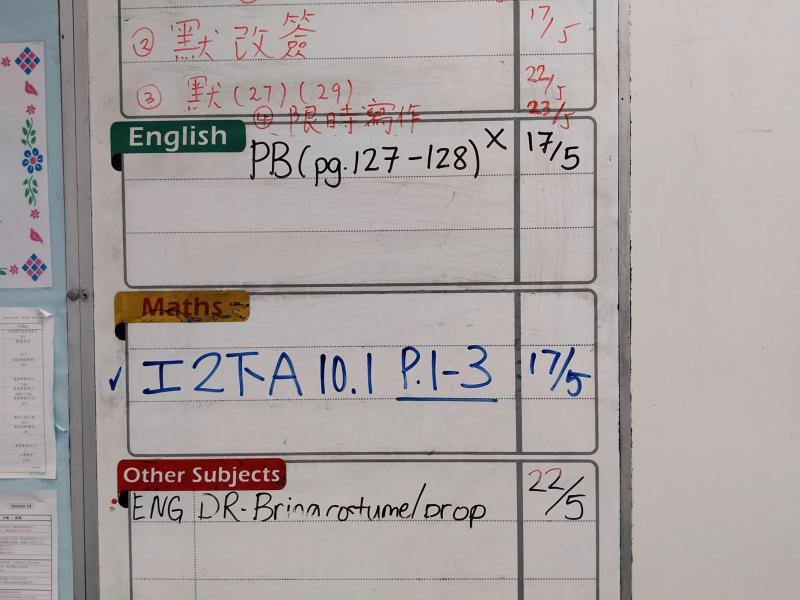 ② 默改簽 17/5
③ 默(27)(29) 22/5
④ 限時寫作 23/5
English
PB(pg.127-128) x 17/5
Maths
✓ 工2下A 10.1 P.1-3 17/5
Other Subjects
ENG DR-Bring costume/prop 22/5
Version 14